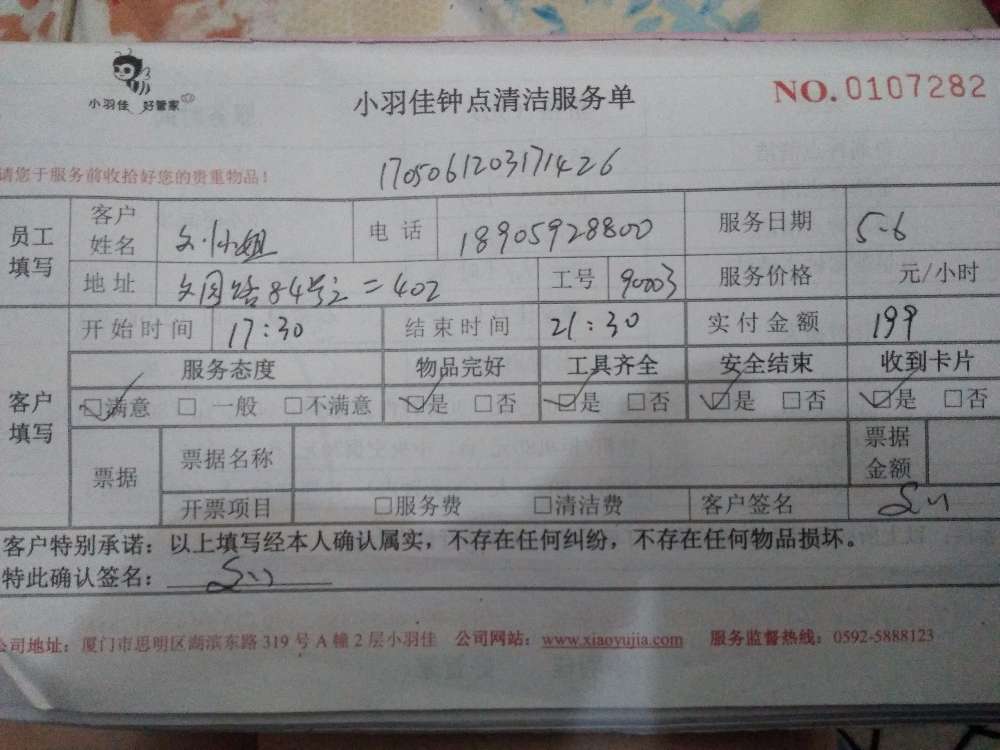 小羽佳 好管家
小羽佳钟点清洁服务单
NO.0107282
请您于服务前收拾好您的贵重物品！
1705061203171426
员工填写 客户姓名 文小姐 电话 18905928800 服务日期 5-6
地址 文园路84号之二402 工号 90003 服务价格 元/小时
客户填写 开始时间 17:30 结束时间 21:30 实付金额 199
服务态度 物品完好 工具齐全 安全结束 收到卡片
☑满意 □一般 □不满意 ☑是 □否 ☑是 □否 ☑是 □否 ☑是 □否
票据 票据名称 票据金额
开票项目 □服务费 □清洁费 客户签名
客户特别承诺：以上填写经本人确认属实，不存在任何纠纷，不存在任何物品损坏。
特此确认签名：
公司地址：厦门市思明区湖滨东路319号A幢2层小羽佳 公司网站：www.xiaoyujia.com 服务监督热线：0592-5888123